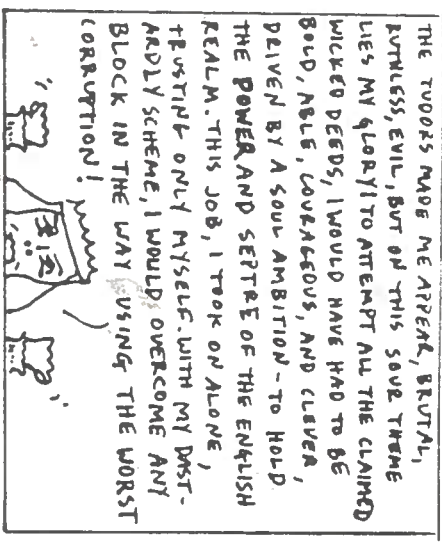 THE TUDORS MADE ME APPEAR, BRUTAL,
RUTHLESS, EVIL, BUT ON THIS SOUR THEME
LIES MY GLORY! TO ATTEMPT ALL THE CLAIMED
WICKED DEEDS, I WOULD HAVE HAD TO BE
BOLD, ABLE, COURAGEOUS, AND CLEVER,
DRIVEN BY A SOUL AMBITION - TO HOLD
THE POWER AND SEPTRE OF THE ENGLISH
REALM. THIS JOB, I TOOK ON ALONE,
TRUSTING ONLY MYSELF. WITH MY DAST-
ARDLY SCHEME, I WOULD OVERCOME ANY
BLOCK IN THE WAY USING THE WORST
CORRUPTION!